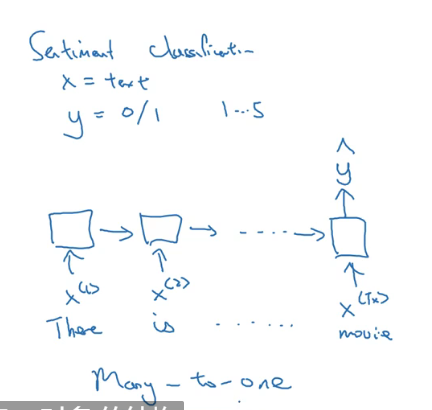 Sentiment classification
x = text
y = 0/1 1...5
ŷ
x<1> x<2> x<Tx>
There is ...... movie
Many-to-one